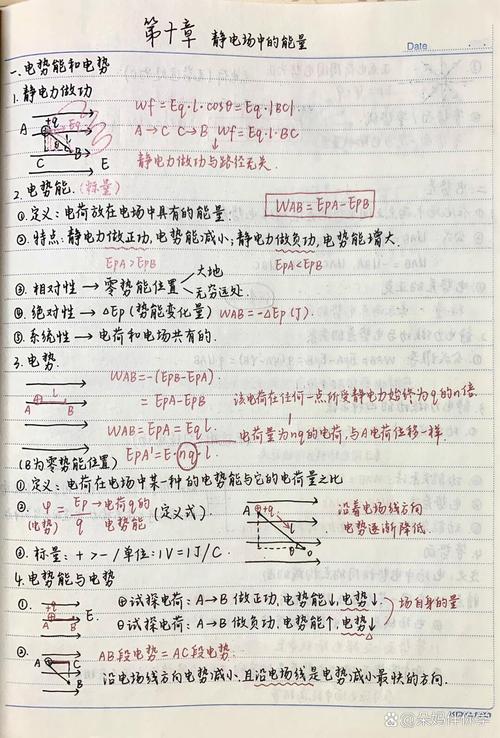 第十章 静电场中的能量
Date
一、电势能和电势
1. 静电力做功
Wf = Eq·l·cosθ = Eq·|BC|
+q
Eq
A
A→C C→B Wf = Eq·l·BC
l
C B E
静电力做功与路径无关.
2. 电势能.(标量)
WAB = EpA - EpB
①. 定义:电荷放在电场中具有的能量.
②. 特点:静电力做正功,电势能减小;静电力做负功,电势能增大.
EpA > EpB EpA < EpB
③. 相对性 → 零势能位置 大地
无穷远处.
④. 绝对性 → ΔEp (势能变化量) WAB = -ΔEp (J).
⑤. 系统性 → 电荷和电场共有的.
3. 电势.
WAB = -(EpB - EpA).
l
A B
= EpA - EpB 该电荷在任何一点所受静电力始终为q的n倍.
WAB = EpA = Eql.
电荷量为nq的电荷,与A电荷位移一样.
EpA' = E·nq·l.
(B为零势能位置)
①定义:电荷在电场中某一种的电势能与它的电荷量之比
②. φ = Ep/q → 电荷q的电势能 (定义式).
(电势)
A +q l θ
沿着电场线方向
电势逐渐降低.
③. 标量:+ > - / 单位:1V = 1J/C.
4. 电势能与电势
①. +q E. ⊕试探电荷:A→B 做正功,电势能↓,电势↓.
A B
场自身的量
⊖试探电荷:A→B 做负功,电势能↑,电势↓.
②. A C B
AB段电势 = AC段电势.
沿电场线方向电势减小,且沿电场线是电势减小最快的方向.
@朵妈伴你学